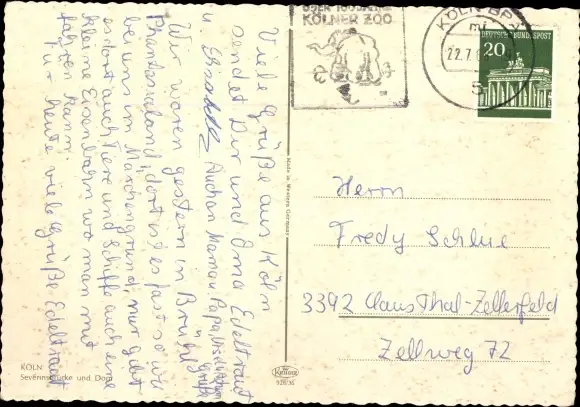 ÜBER 100 JAHRE
KÖLNER ZOO
KÖLN BPA
22.7.
5
DEUTSCHE BUNDESPOST
20
Viele Grüße aus Köln
sendet Dir und Oma Edeltraut
u. Elisabeth Auch an Mama u Papa Grüße
Wir waren gestern in Brühl
Phantasialand, dort ist es fast so wie
bei uns im Märchengrund, nur gibt
es dort auch Tiere und Schiffe auch eine
kleine Eisenbahn wo man mit
fahren kann.
Für heute viele Grüße Edeltraut
Made in Western Germany
Herrn
Fredy Schlue
3392 Claus Thal-Zellerfeld
Zellweg 72
KÖLN
Severinsbrücke und Dom
Krüger
928/36